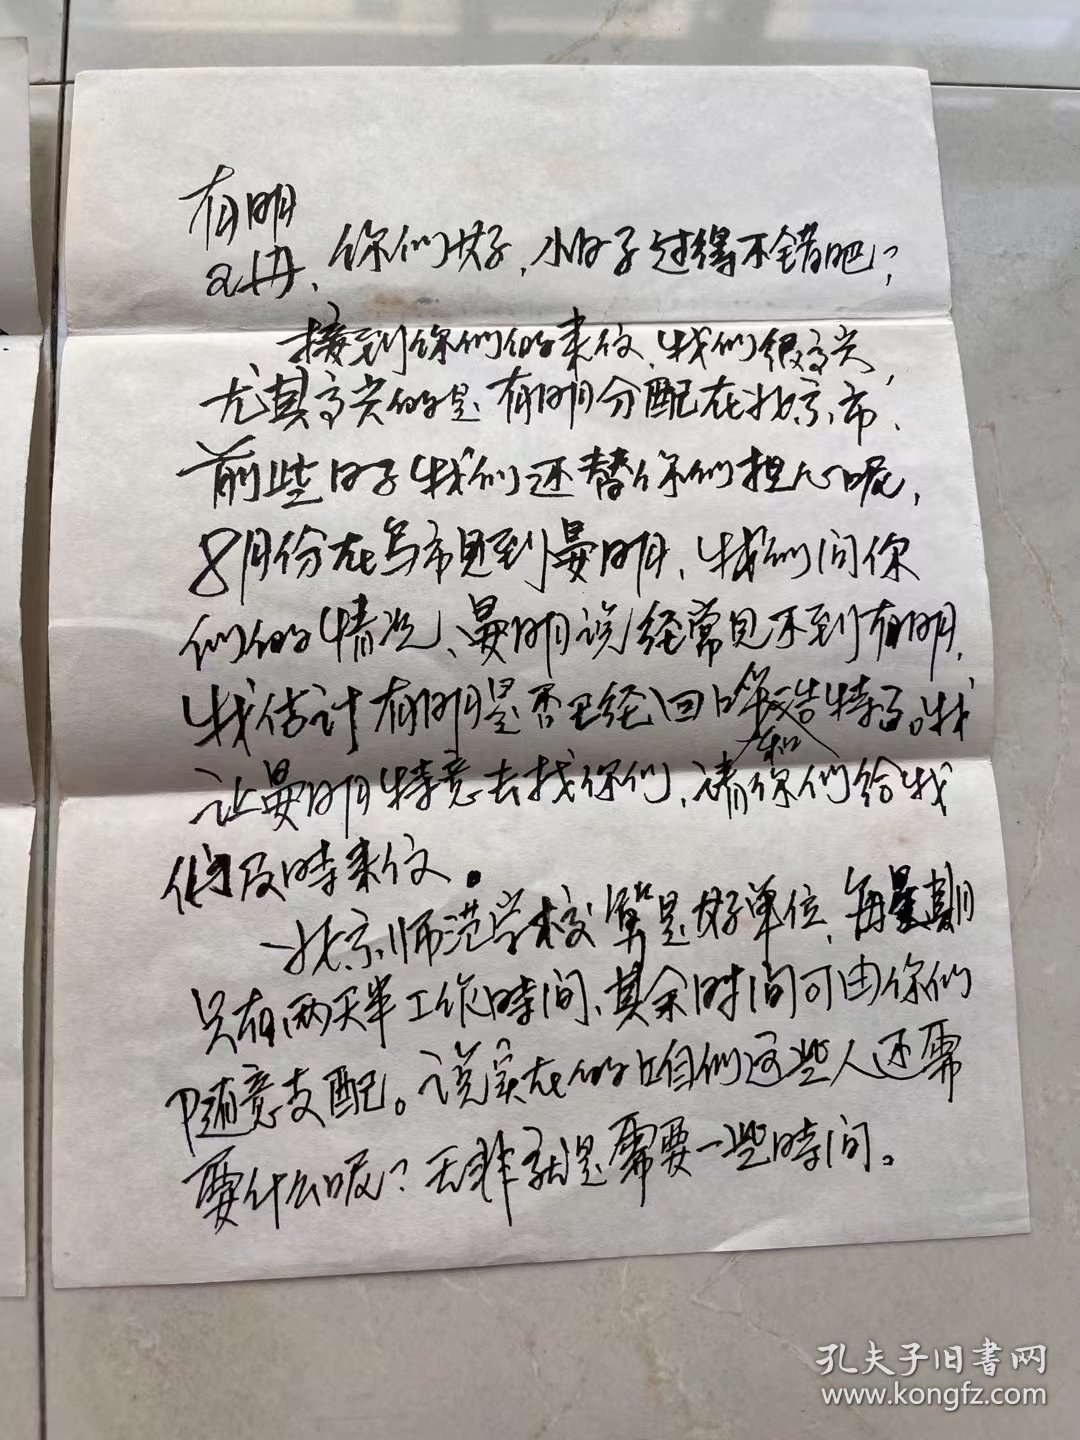 有明
丹、你们好，小日子过得不错吧？
接到你们的来信、我们很高兴，
尤其高兴的是有明分配在北京市、
前些日子我们还替你们担心呢，
8月份在乌市见到晏明、我们问你
们的情况、晏明说经常见不到有明，
我估计有明是否已经回哈特了。我
让晏明特意去找你们、和请你们给我
们及时来信。
北京师范学校算是好单位，每星期
只有两天半工作时间、其余时间可由你们
随意支配。说实在的咱们这些人还需
要什么呢？无非就是需要一些时间。
孔夫子旧书网
www.kongfz.com